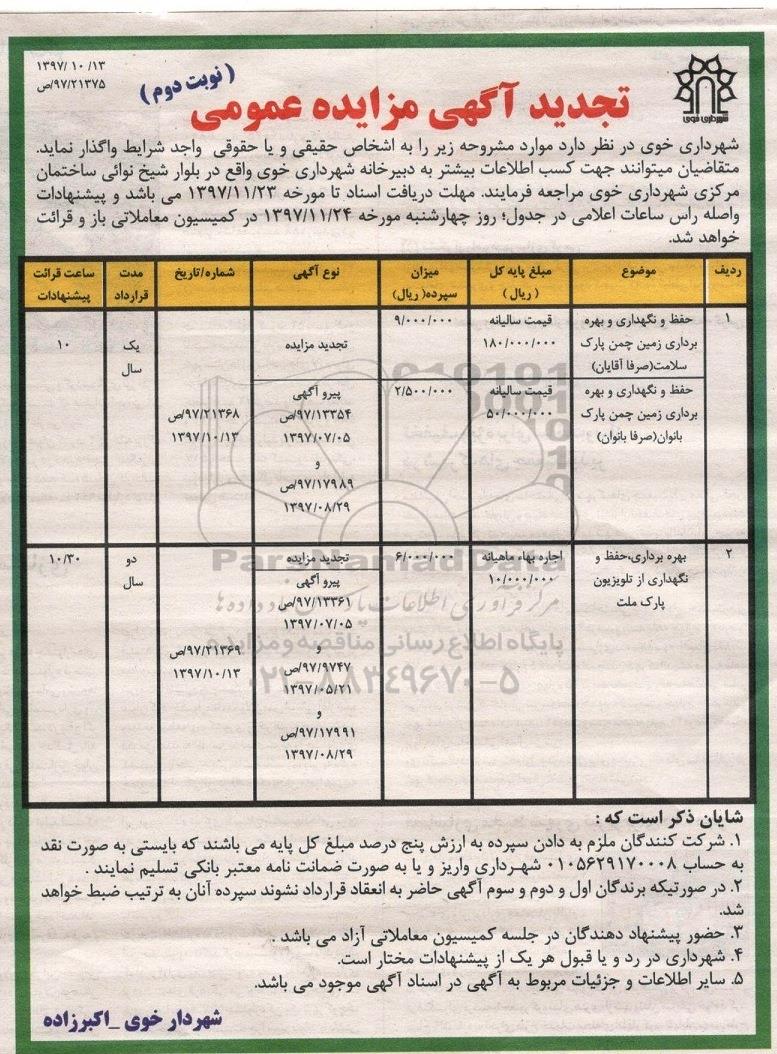 ۱۳/ ۱۰ /۱۳۹۷
۹۷/۲۱۳۷۵/ص
(نوبت دوم)
شهرداری خوی
تجدید آگهی مزایده عمومی
شهرداری خوی در نظر دارد موارد مشروحه زیر را به اشخاص حقیقی و یا حقوقی واجد شرایط واگذار نماید.
متقاضیان میتوانند جهت کسب اطلاعات بیشتر به دبیرخانه شهرداری خوی واقع در بلوار شیخ نوائی ساختمان
مرکزی شهرداری خوی مراجعه فرمایند. مهلت دریافت اسناد تا مورخه ۱۳۹۷/۱۱/۲۳ می باشد و پیشنهادات
واصله راس ساعات اعلامی در جدول؛ روز چهارشنبه مورخه ۱۳۹۷/۱۱/۲۴ در کمیسیون معاملاتی باز و قرائت
خواهد شد.
ردیف
موضوع
مبلغ پایه کل
( ریال )
میزان
سپرده( ریال)
نوع آگهی
شماره/تاریخ
مدت
قرارداد
ساعت قرائت
پیشنهادات
۱
حفظ و نگهداری و بهره
برداری زمین چمن پارک
سلامت(صرفا آقایان)
قیمت سالیانه
۱۸۰/۰۰۰/۰۰۰
۹/۰۰۰/۰۰۰
تجدید مزایده
یک
سال
۱۰
حفظ و نگهداری و بهره
برداری زمین چمن پارک
بانوان(صرفا بانوان)
قیمت سالیانه
۵۰/۰۰۰/۰۰۰
۲/۵۰۰/۰۰۰
پیرو آگهی
۹۷/۱۳۳۵۴/ص
۱۳۹۷/۰۷/۰۵
و
۹۷/۱۷۹۸۹/ص
۱۳۹۷/۰۸/۲۹
۹۷/۲۱۳۶۸/ص
۱۳۹۷/۱۰/۱۳
۲
بهره برداری،حفظ و
نگهداری از تلویزیون
پارک ملت
اجاره بهاء ماهیانه
۱۰/۰۰۰/۰۰۰
۶/۰۰۰/۰۰۰
تجدید مزایده
پیرو آگهی
۹۷/۱۳۳۶۱/ص
۱۳۹۷/۰۷/۰۵
و
۹۷/۹۷۴۷/ص
۱۳۹۷/۰۵/۲۱
و
۹۷/۱۷۹۹۱/ص
۱۳۹۷/۰۸/۲۹
۹۷/۲۱۳۶۹/ص
۱۳۹۷/۱۰/۱۳
دو
سال
۱۰/۳۰
ParsNamadData
مرکز فرآوری اطلاعات پارس نماد داده ها
پایگاه اطلاع رسانی مناقصه و مزایده
۰۲۱-۸۸۳۴۹۶۷۰-۵
شایان ذکر است که :
۱. شرکت کنندگان ملزم به دادن سپرده به ارزش پنج درصد مبلغ کل پایه می باشند که بایستی به صورت نقد
به حساب ۰۱۰۵۶۲۹۱۷۰۰۰۸ شهرداری واریز و یا به صورت ضمانت نامه معتبر بانکی تسلیم نمایند .
۲. در صورتیکه برندگان اول و دوم و سوم آگهی حاضر به انعقاد قرارداد نشوند سپرده آنان به ترتیب ضبط خواهد
شد.
۳. حضور پیشنهاد دهندگان در جلسه کمیسیون معاملاتی آزاد می باشد .
۴. شهرداری در رد و یا قبول هر یک از پیشنهادات مختار است.
۵. سایر اطلاعات و جزئیات مربوط به آگهی در اسناد آگهی موجود می باشد.
شهردار خوی _اکبرزاده